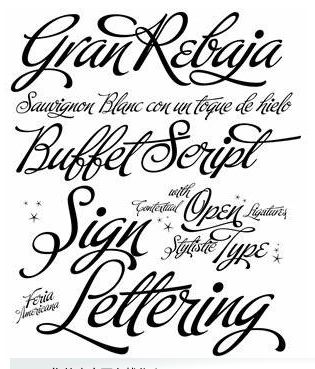 Gran Rebaja
Sauvignon Blanc con un toque de hielo
Buffet Script
Sign
with
Contextual
Open
Ligatures
Stylistic
Type
Feria
Americana
Lettering